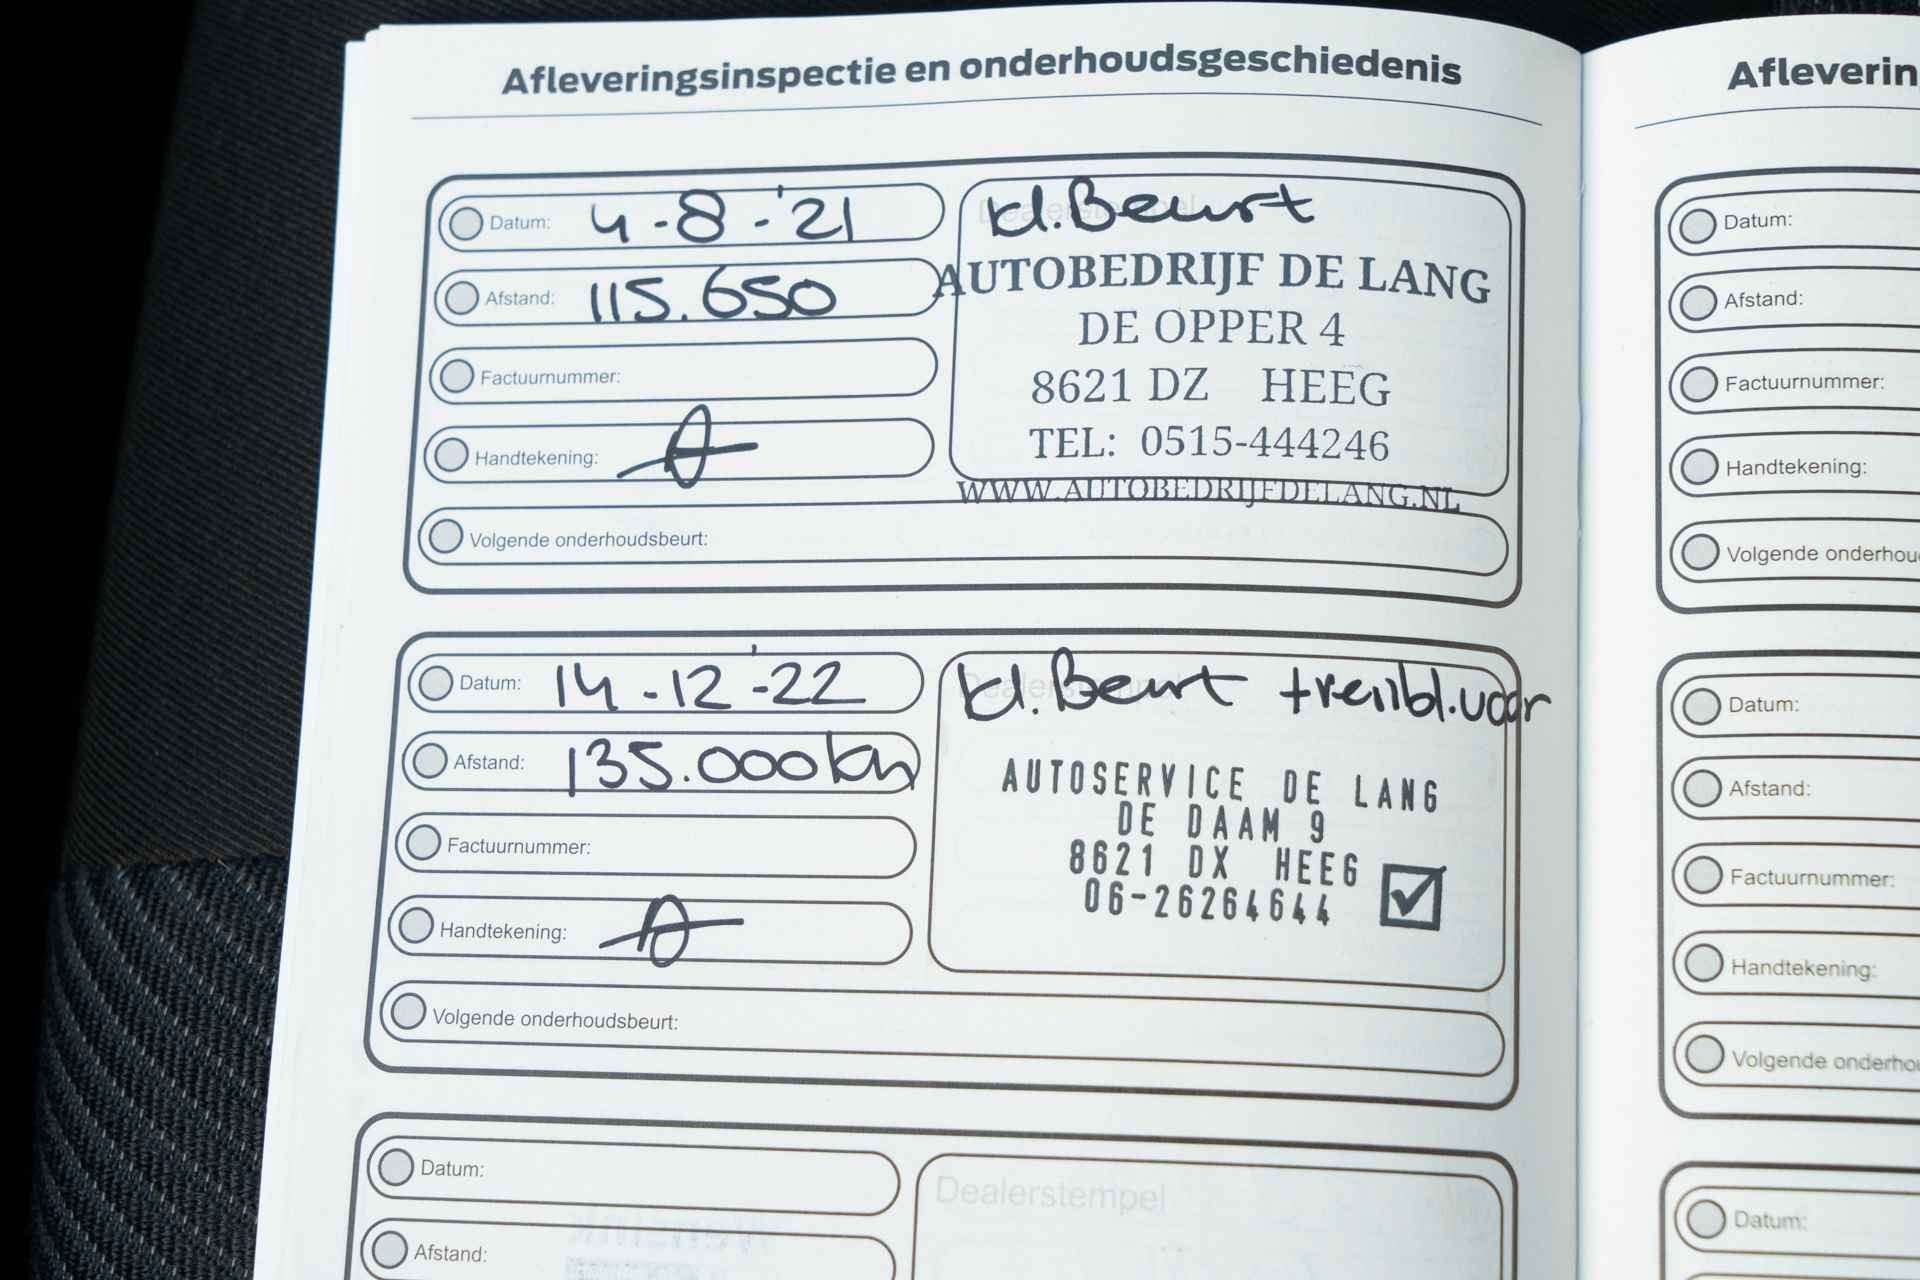 Afleveringsinspectie en onderhoudsgeschiedenis
Datum: 4-8-'21
Afstand: 115.650
Factuurnummer:
Handtekening:
Volgende onderhoudsbeurt:
Dealerstempel
kl.Beurt
AUTOBEDRIJF DE LANG
DE OPPER 4
8621 DZ HEEG
TEL: 0515-444246
WWW.AUTOBEDRIJFDELANG.NL
Datum: 14-12-'22
Afstand: 135.000km
Factuurnummer:
Handtekening:
Volgende onderhoudsbeurt:
Dealerstempel
kl.Beurt + rembl.voor
AUTOSERVICE DE LANG
DE DAAM 9
8621 DX HEEG
06-26264644
Datum:
Afstand:
Dealerstempel
Afleverin
Datum:
Afstand:
Factuurnummer:
Handtekening:
Volgende onderhou
Datum:
Afstand:
Factuurnummer:
Handtekening:
Volgende onderhou
Datum: